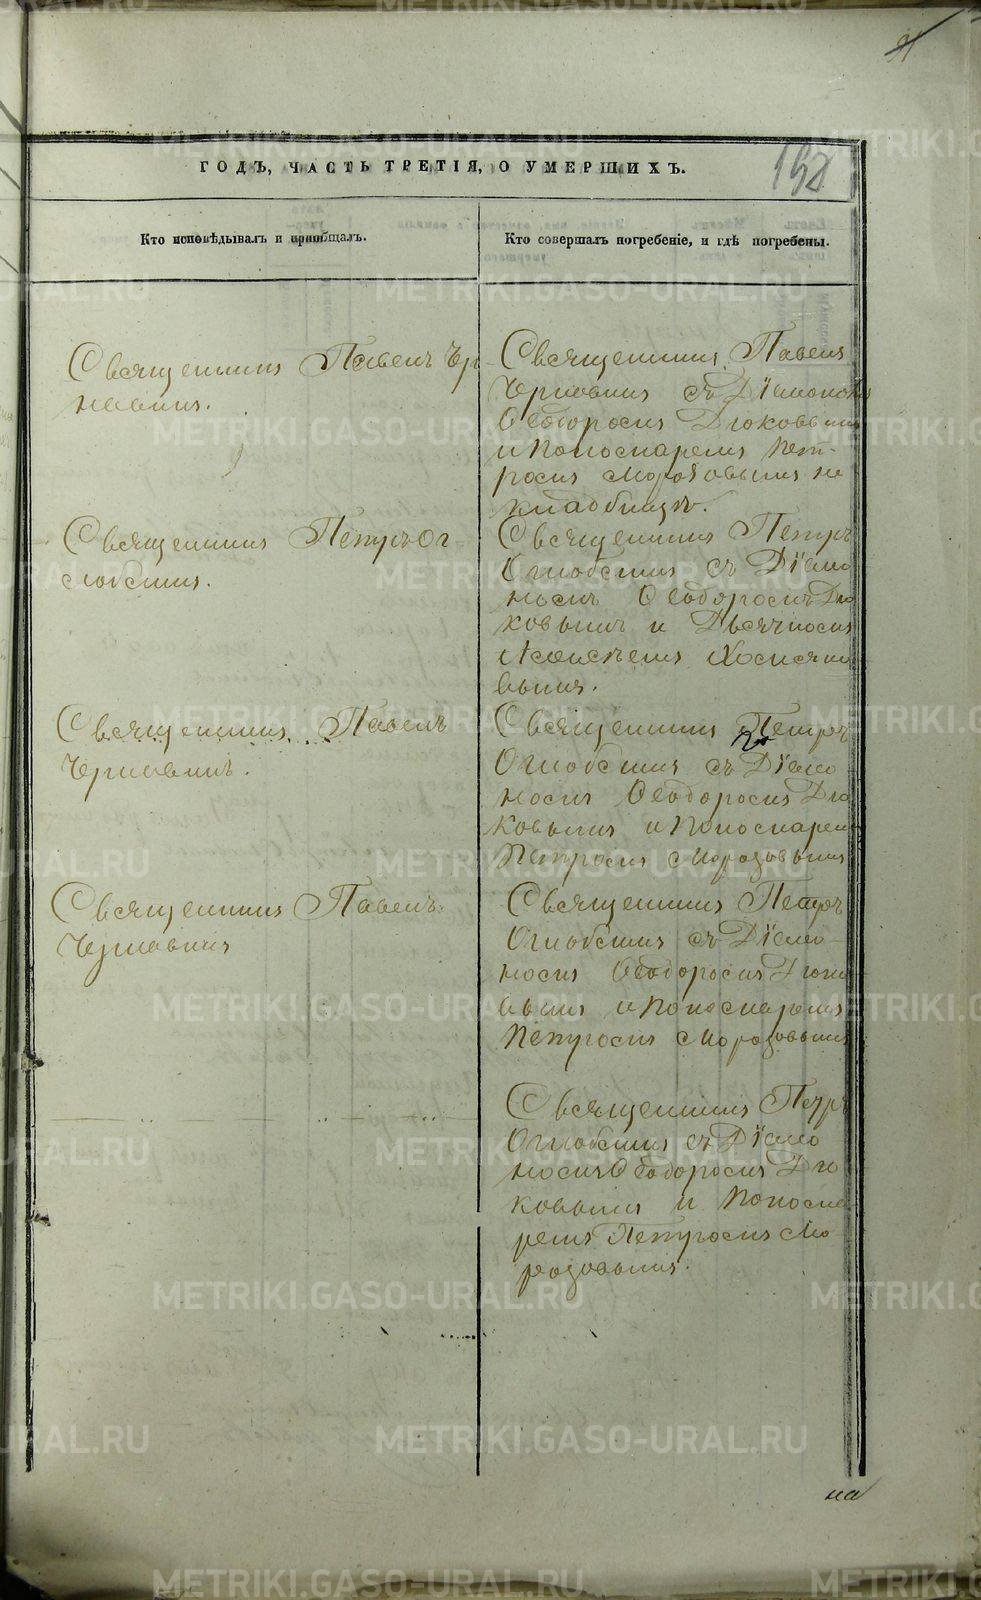 91
198
ГОДЪ, ЧАСТЬ ТРЕТІЯ, О УМЕРШИХЪ.
Кто исповѣдывалъ и пріобщалъ.
Кто совершалъ погребеніе, и гдѣ погребены.
Священникъ Павелъ Чер
навинъ.
Священникъ Павелъ
Чернавинъ съ Діакономъ
Ѳеодоромъ Дюковымъ
и Пономаремъ Пет-
ромъ Морозовымъ на
кладбищѣ.
Священникъ Петръ Ог-
лоблинъ.
Священникъ Петръ
Оглоблинъ съ Діако
номъ Ѳеодоромъ Дю
ковымъ и Дьячкомъ
вымъ.
Священникъ Павелъ
Чернавинъ.
Священникъ Петръ
Оглоблинъ съ Діако
номъ Ѳеодоромъ Дю
ковымъ и Пономарем
Петромъ Морозовымъ
Священникъ Павелъ
Чернавинъ
Священникъ Петръ
Оглоблинъ съ Діако
номъ Ѳеодоромъ Дюко
вымъ и Пономаремъ
Петромъ Морозовымъ
Священникъ Петръ
Оглоблинъ съ Діако
номъ Ѳеодоромъ Дю
ковымъ и Понома
ремъ Петромъ Мо
розовымъ.
на
METRIKI.GASO-URAL.RU